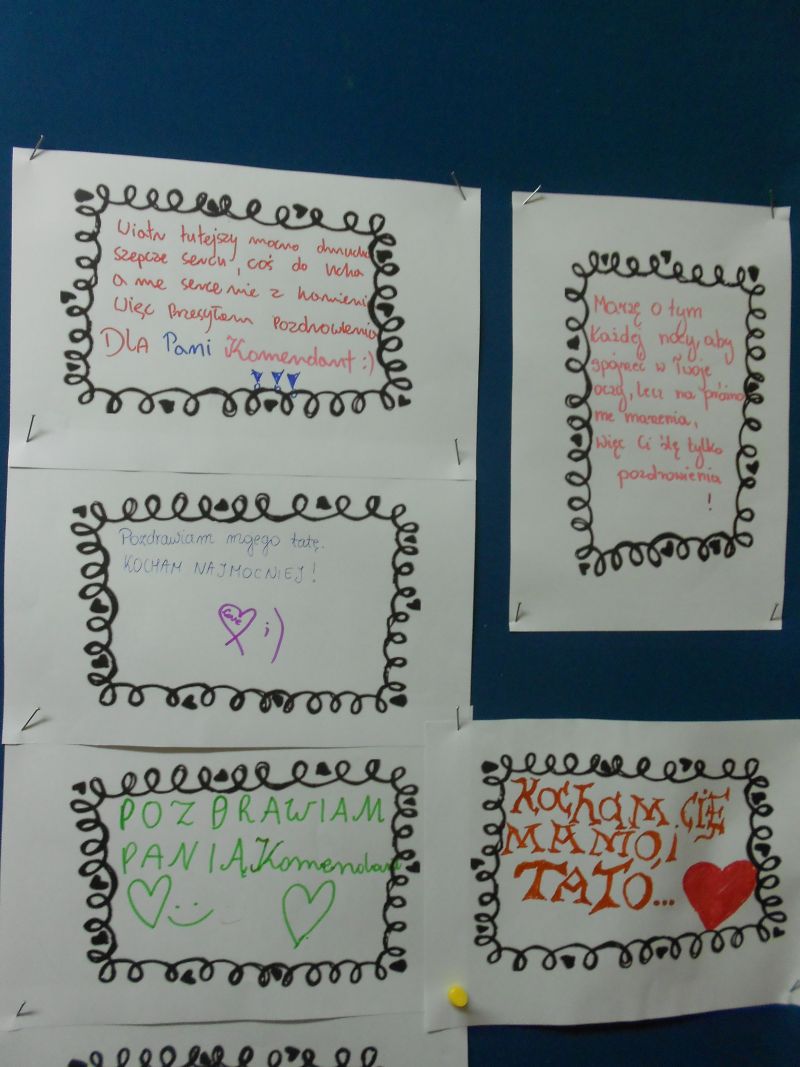 Wiatr tutejszy mocno dmucha
szepcze sercu, coś do ucha
a me serce nie z kamieni
więc przesyłam pozdrowienia
DLA Pani Komendant :)
Marzę o tym
każdej nocy, aby
spojrzeć w Twoje
oczy, lecz na próżno
me marzenia,
więc Ci ślę tylko
pozdrowienia
!
Pozdrawiam mojego tatę.
KOCHAM NAJMOCNIEJ!
love ;)
POZDRAWIAM
PANIĄ Komendant
KOCHAM CIĘ
MAMO i
TATO...